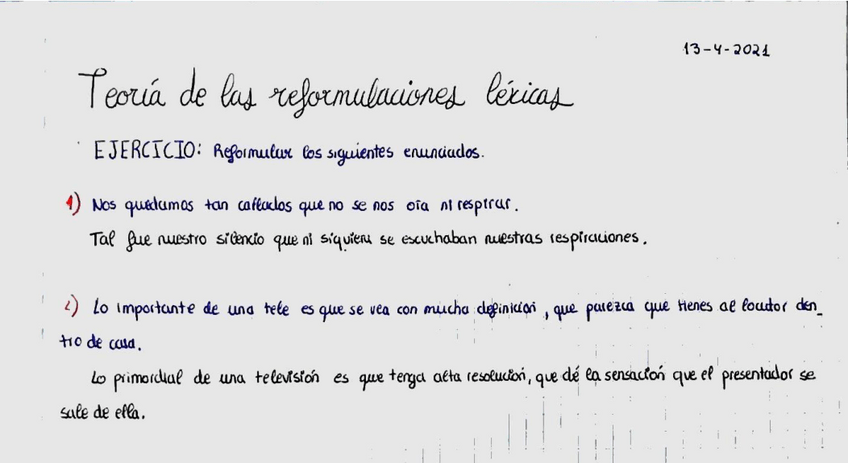 13-4-2021
Teoría de las reformulaciones léxicas
EJERCICIO: Reformular los siguientes enunciados.
1) Nos quedamos tan callados que no se nos oía ni respirar.
Tal fue nuestro silencio que ni siquiera se escuchaban nuestras respiraciones.
2) Lo importante de una tele es que se vea con mucha definición, que parezca que tienes al locutor den_
tro de casa.
Lo primordial de una televisión es que tenga alta resolución, que dé la sensación que el presentador se
sale de ella.